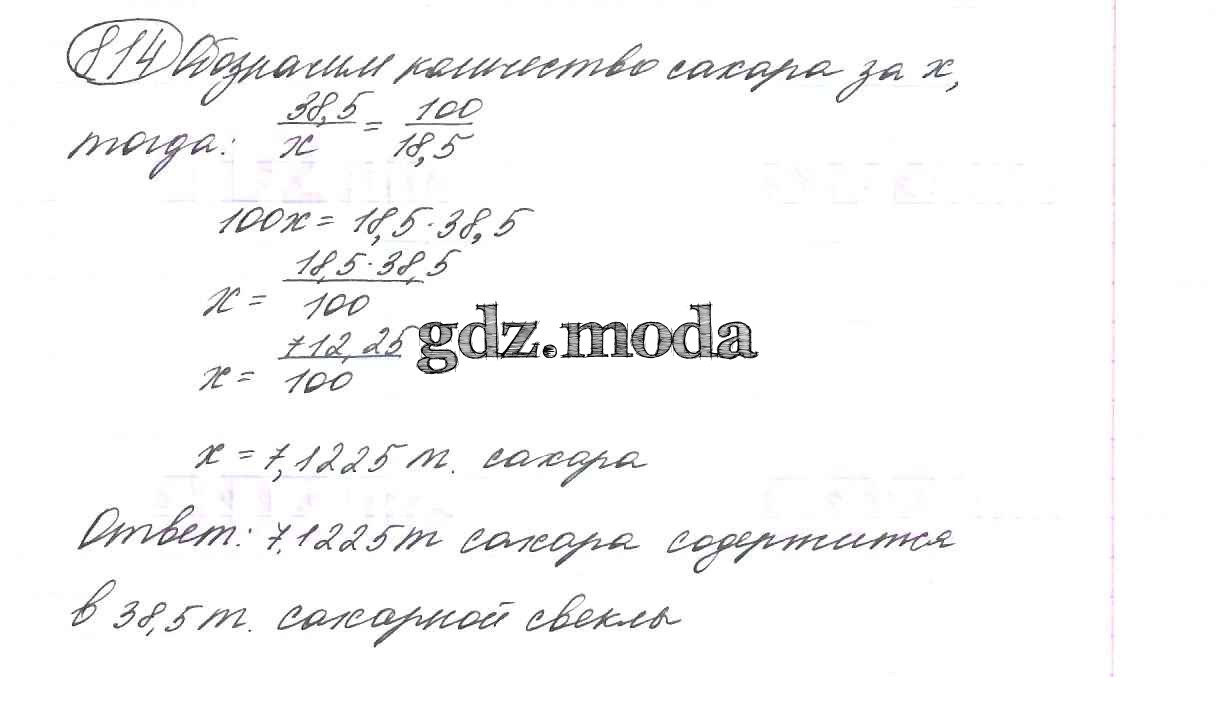 814 Обозначим количество сахара за x,
тогда: 38,5/x = 100/18,5
100x = 18,5·38,5
x = 18,5·38,5/100
x = 712,25/100
gdz.moda
x = 7,1225 т. сахара
Ответ: 7,1225т сахара содержится
в 38,5 т. сахарной свеклы